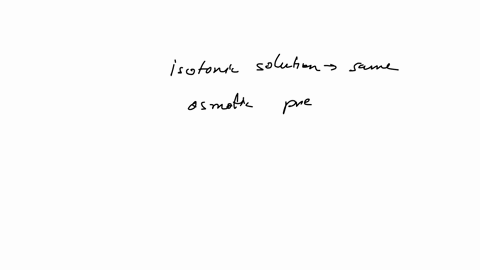 isotonic solution → same
osmotic pre